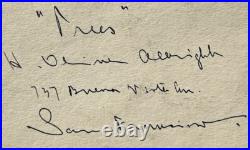 "Trees"
H. Oliver Albright
737 Buena Vista Av.
San Francisco.